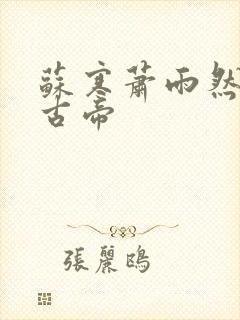 蘇寒蕭雨然
古帝
張麗鴎